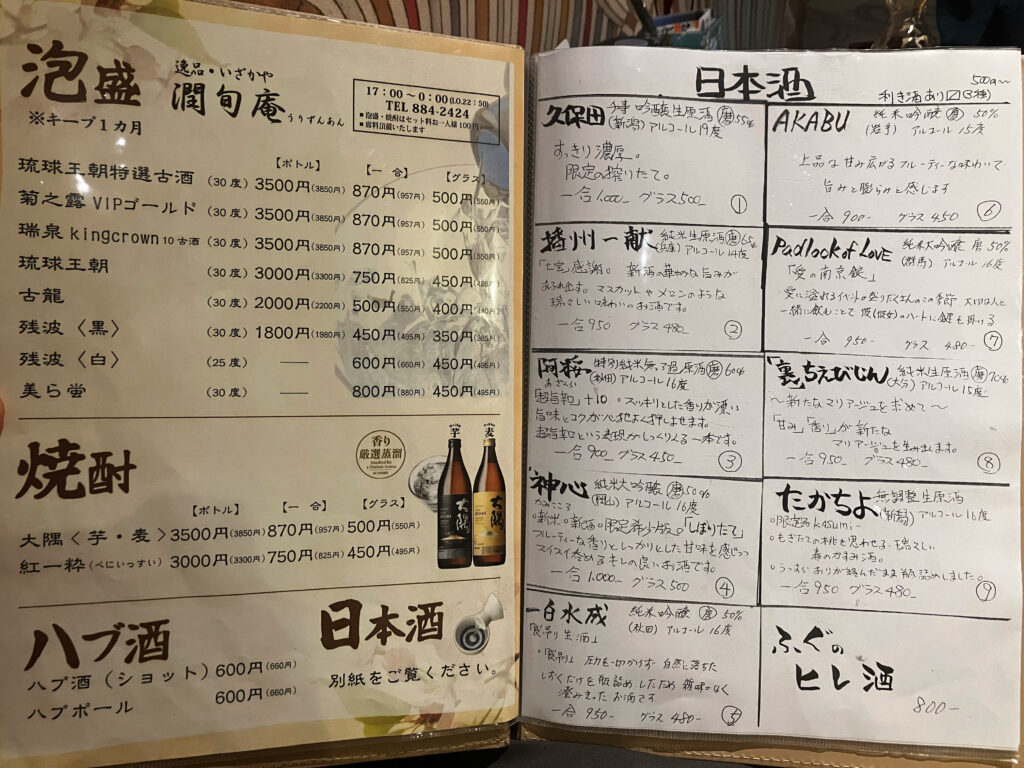 泡盛
※キープ1カ月
逸品・いざかや
潤旬庵 うりずんあん
17：00～0：00(LO.22：50)
TEL 884-2424
●泡盛・焼酎はセット料お一人様100円
●席料頂戴いたします
【ボトル】 【一 合】 【グラス】
琉球王朝特選古酒 (30度) 3500円(3850円) 870円(957円) 500円(550円)
菊之露 VIPゴールド (30度) 3500円(3850円) 870円(957円) 500円(550円)
瑞泉 kingcrown 10古酒 (30度) 3500円(3850円) 870円(957円) 500円(550円)
琉球王朝 (30度) 3000円(3300円) 750円(825円) 450円(495円)
古龍 (30度) 2000円(2200円) 500円(550円) 400円(440円)
残波〈黒〉 (30度) 1800円(1980円) 450円(495円) 350円(385円)
残波〈白〉 (25度) ―― 600円(660円) 450円(495円)
美ら蛍 (30度) ―― 800円(880円) 450円(495円)
焼酎
香り
厳選蒸溜
芋
麦
大隅
大隅
【ボトル】 【一 合】 【グラス】
大隅〈芋・麦〉 3500円(3850円) 870円(957円) 500円(550円)
紅一粋(べにいっすい) 3000円(3300円) 750円(825円) 450円(495円)
ハブ酒
ハブ酒（ショット）600円(660円)
ハブボール 600円(660円)
日本酒
別紙をご覧ください。
日本酒 500円～
利き酒あり〼(3種)
久保田 千寿 吟醸生原酒 磨55%
(新潟) アルコール19度
すっきり濃厚。
限定の搾りたて。
一合1,000- グラス500- ①
播州一献 純米生原酒 磨65%
(兵庫) アルコール14度
「七宝」感謝。 新酒の華やかな旨みが
あふれ出す。マスカットやメロンのような
瑞々しい味わいのお酒です。
一合950 グラス480- ②
阿櫻 特別純米無ろ過原酒 磨60%
あざくら (秋田) アルコール16度
「超旨辛口」+10。スッキリとした香りが漂い
旨味とコクが心地よく押しよせます。
超旨辛口という表現がしっくりくる一本です。
一合900_ グラス450_ ③
神心 純米大吟醸 磨50%
かみこころ (岡山) アルコール16度
○新米○新酒○限定希少版。「しぼりたて」
フルーティーな香りとしっかりとした甘味を感じつつ
スイスイ呑めるキレの良いお酒です。
一合1,000- グラス500 ④
一白水成 純米吟醸 磨50%
「袋吊り生酒」 (秋田) アルコール16度
「袋吊り」圧力を一切かけず 自然に落ちた
しずくだけを瓶詰めしたため 雑味なく
澄みきったお酒です
一合950- グラス480- ⑤
AKABU 純米吟醸 磨50%
(岩手) アルコール15度
上品な甘み広がるフルーティーな味わいで
旨みと膨らみを感じます
一合900- グラス450 ⑥
Padlock of LOVE 純米大吟醸 磨50%
「愛の南京錠」 (群馬) アルコール16度
愛に溢れるイベントが盛りだくさんのこの季節 大切な人と
一緒に飲むことで 彼(彼女)のハートに鍵を掛ける
一合950- グラス480- ⑦
“裏”ちえびじん 純米生原酒 磨70%
(大分) アルコール15度
～新たなマリアージュを求めて～
「甘み」「香り」が新たな
マリアージュを生み出します。
一合950_ グラス480_ ⑧
たかちよ 無調整生原酒
(新潟) アルコール16度
○限定酒 Kasumi-
○もぎたての桃を思わせる、瑞々しい
春のかすみ酒。
○うっすらおりが絡んだまま瓶詰めしました。
一合950 グラス480- ⑨
ふぐの
ヒレ酒
800-